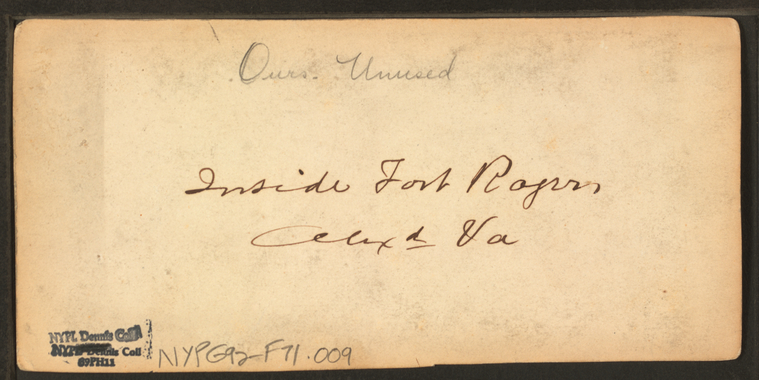 Ours. Unused
Inside Fort Rogers
Alexd Va
NYPL Dennis Coll
NYPL Dennis Coll
89PH11
NYPG92-F71.009